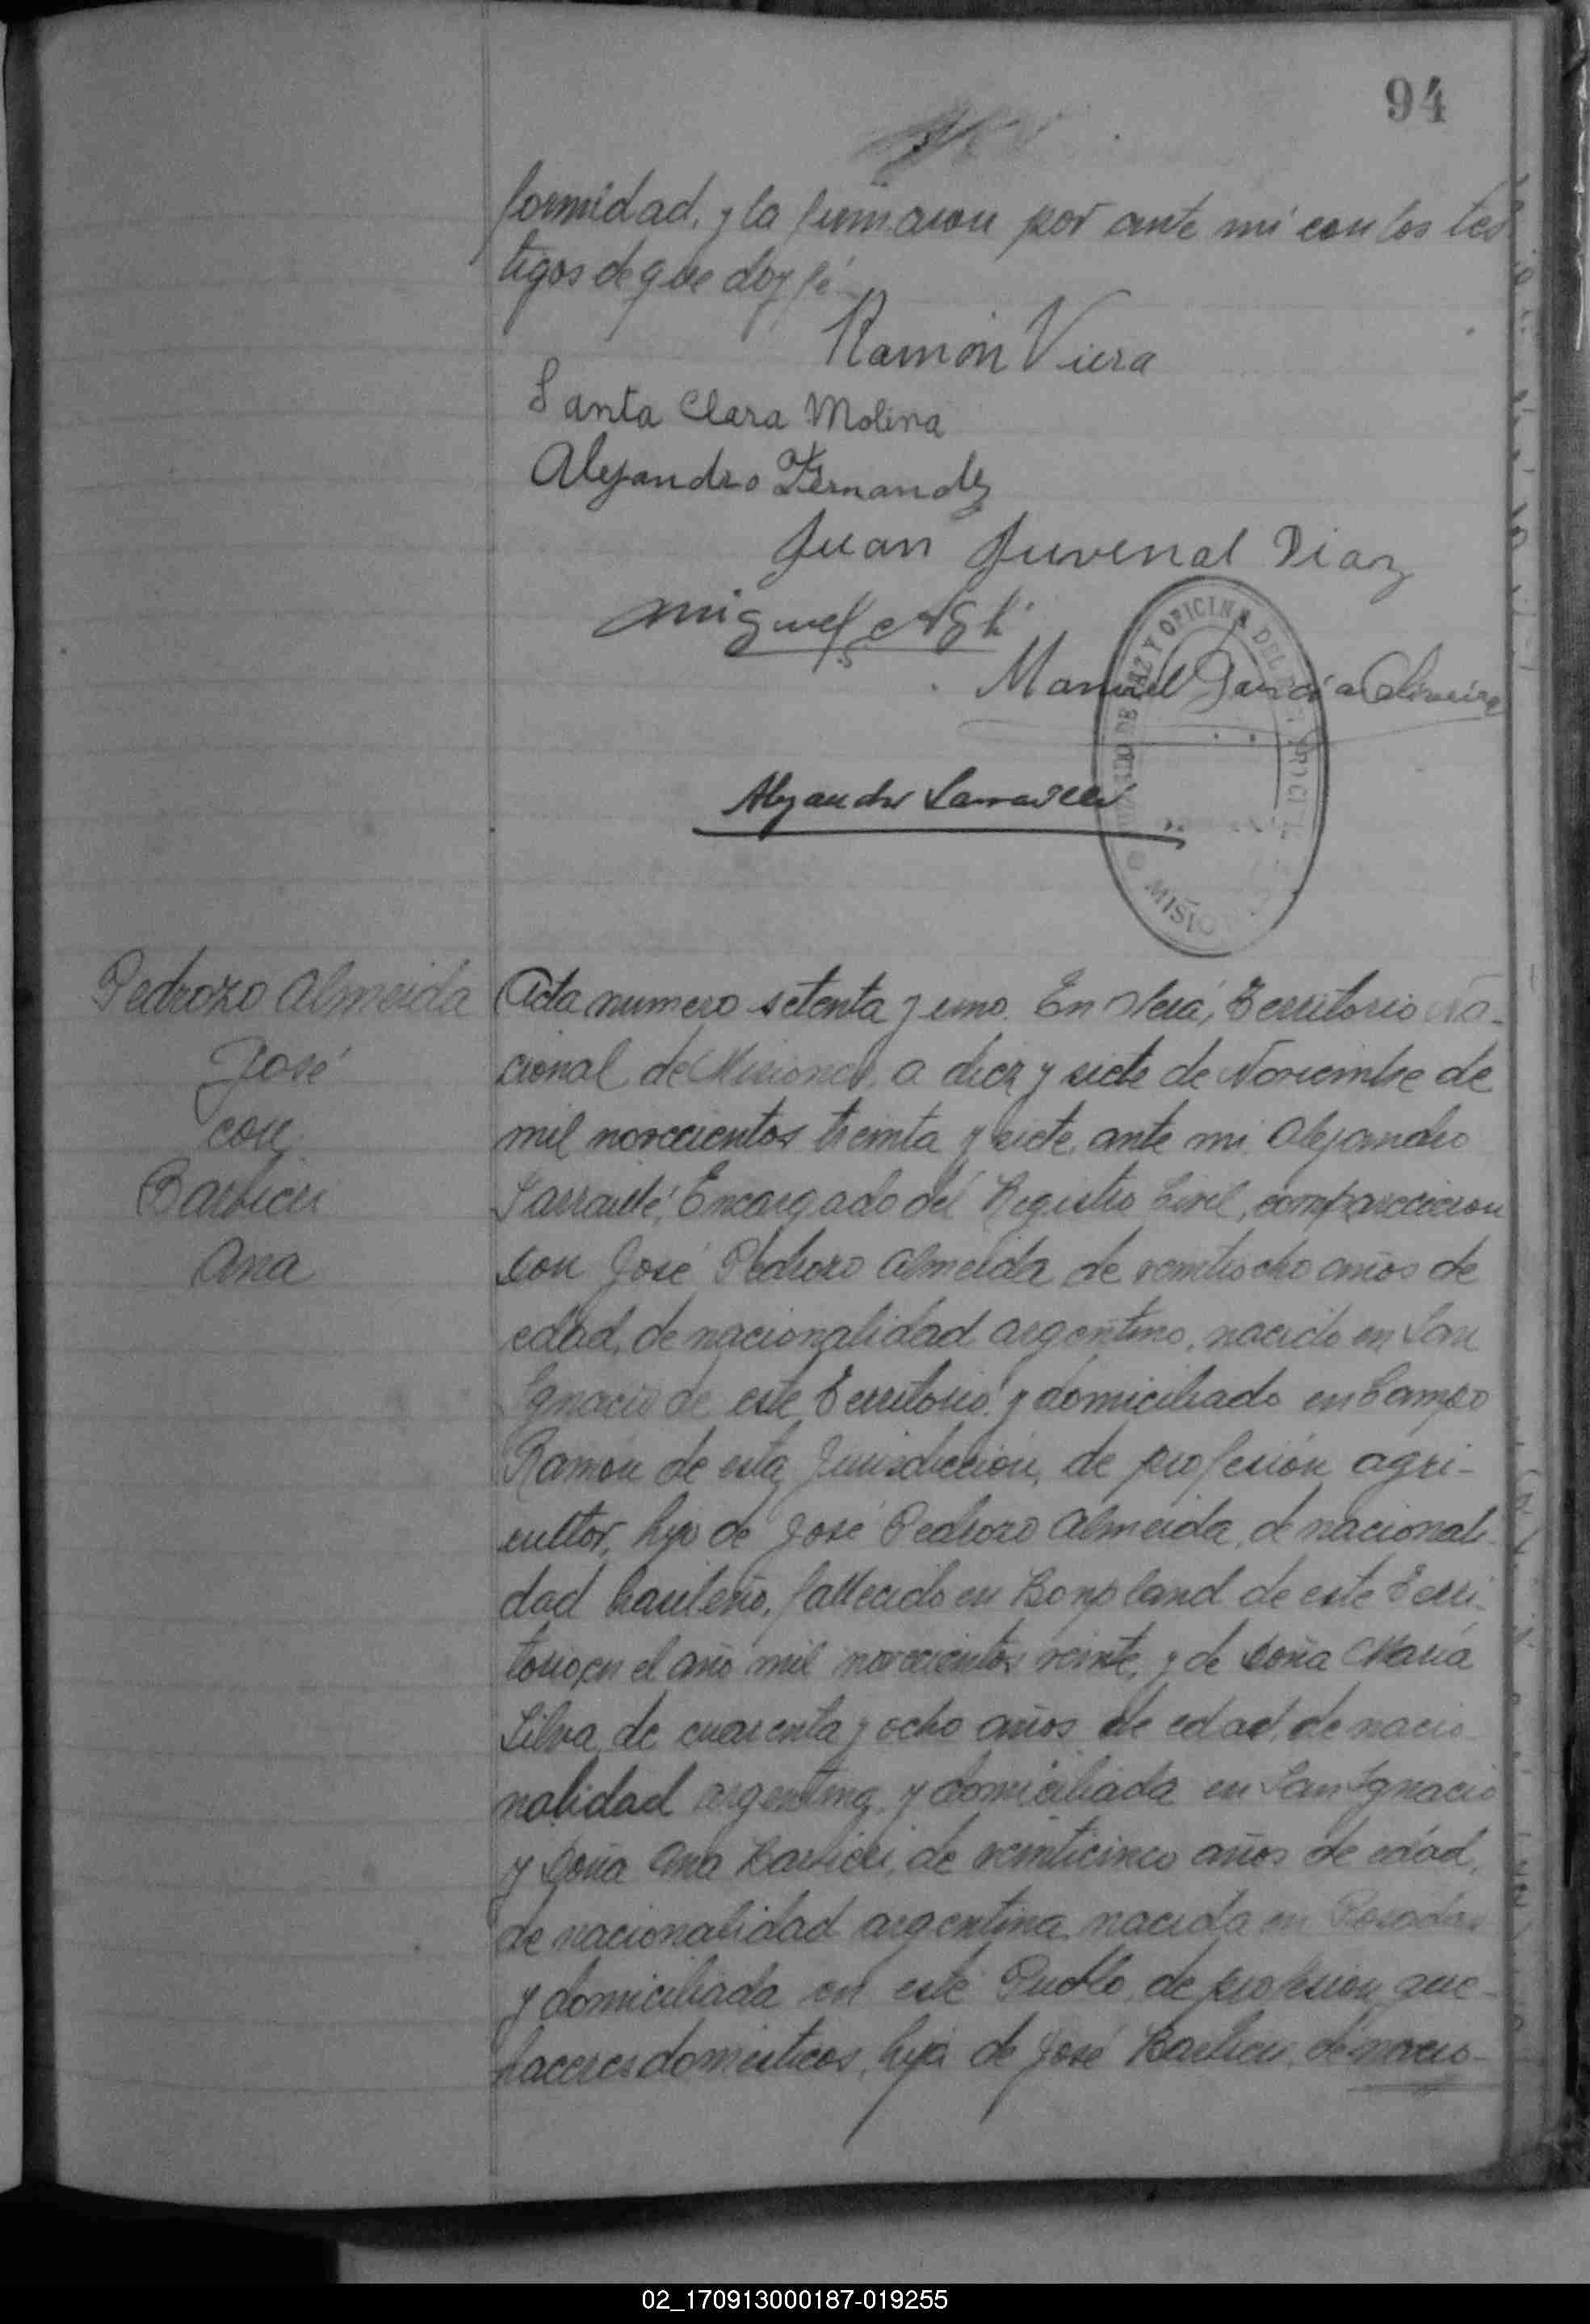 94
formidad, y la firmaron por ante mi con los tes
tigos de que doy fé
Ramón Viera
Santa Clara Molina
Alejandro Fernandez
Juan Juvenal Diaz
Miguel
Manuel García Oliveira
Alejandro Sarraillé
DE PAZ Y OFICINA DEL
MISIO
Pedrozo Almeida
José
con
Barbieri
Ana
Acta numero setenta y uno. En Verá, Territorio Na-
cional de Misiones, a diez y siete de Noviembre de
mil novecientos treinta y siete, ante mi Alejandro
Sarraillé, Encargado del Registro Civil, comparecieron
Don José Pedrozo Almeida de veintiocho años de
edad, de nacionalidad argentino, nacido en San
Ignacio de este Territorio y domiciliado en Campo
Ramón de esta Jurisdicción, de profesión agri-
cultor, hijo de José Pedrozo Almeida, de nacionali-
dad brasileño, fallecido en Bonpland de este Terri-
torio, en el año mil novecientos veinte, y de Doña María
Silva, de cuarenta y ocho años de edad, de nacio-
nalidad argentina, y domiciliada en San Ignacio
y Doña Ana Barbieri, de veinticinco años de edad,
de nacionalidad argentina nacida en Posadas
y domiciliada en este Pueblo, de profesión que-
haceres domesticos, hija de José Barbieri, de nacio-
02_170913000187-019255